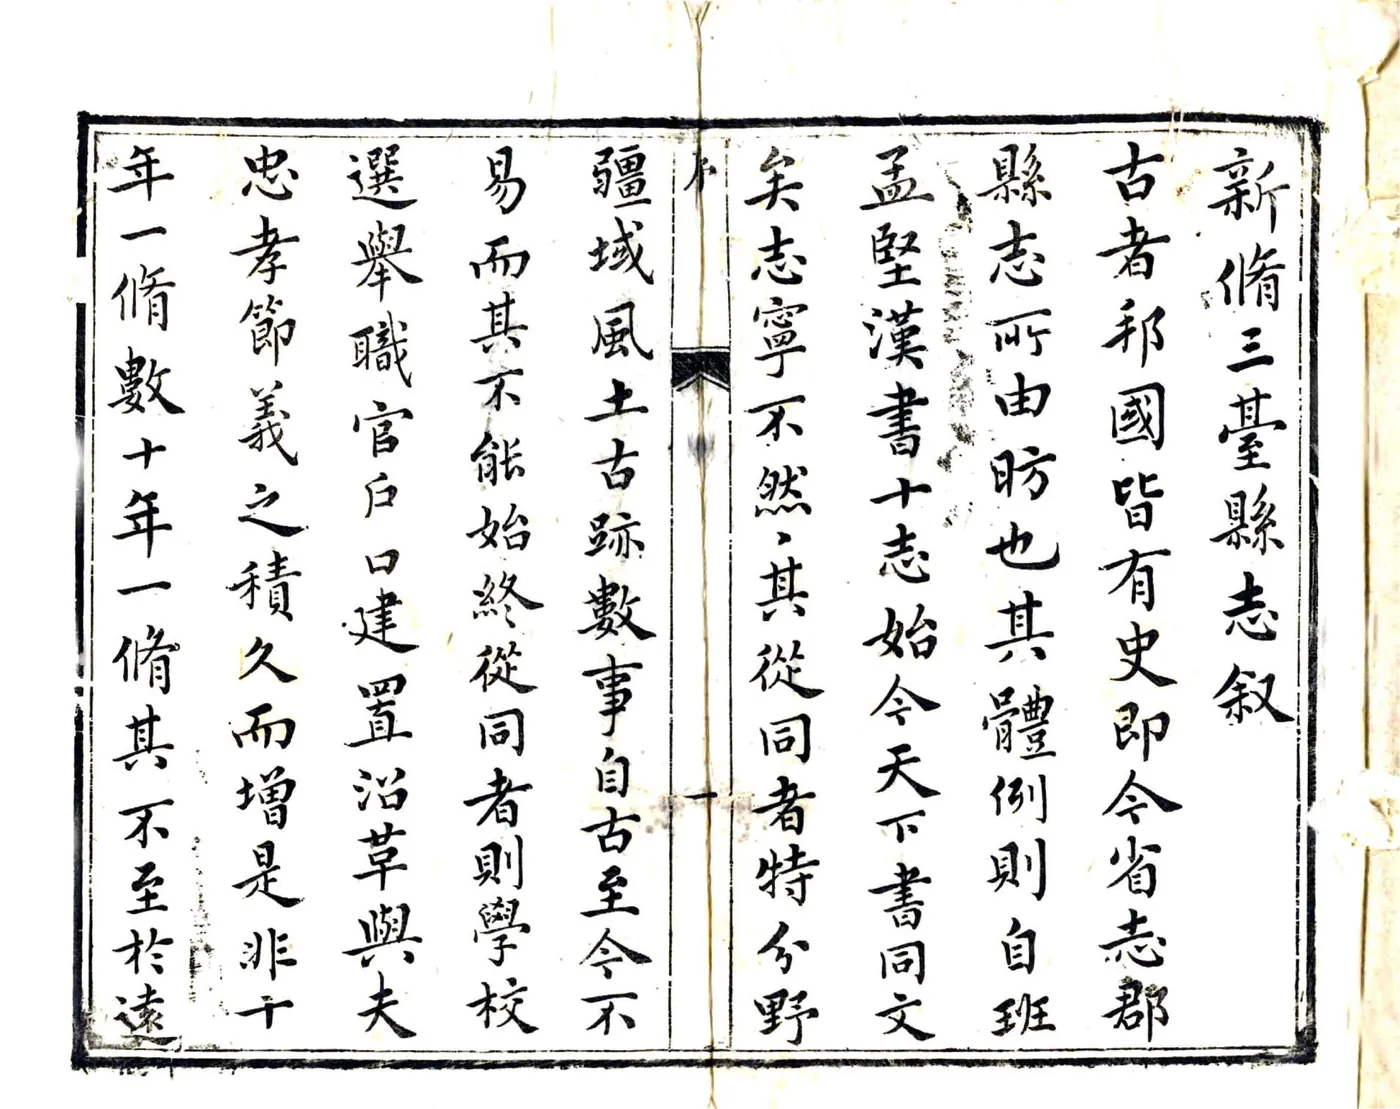 新脩三臺縣志叙
古者邦國皆有史即今省志郡
縣志所由昉也其體例則自班
孟堅漢書十志始今天下書同文
矣志寧不然〻其從同者特分野
序
一
疆域風土古跡數事自古至今不
易而其不能始終從同者則學校
選舉職官戶口建置沿革與夫
忠孝節義之積久而增是非十
年一脩數十年一脩其不至於遠